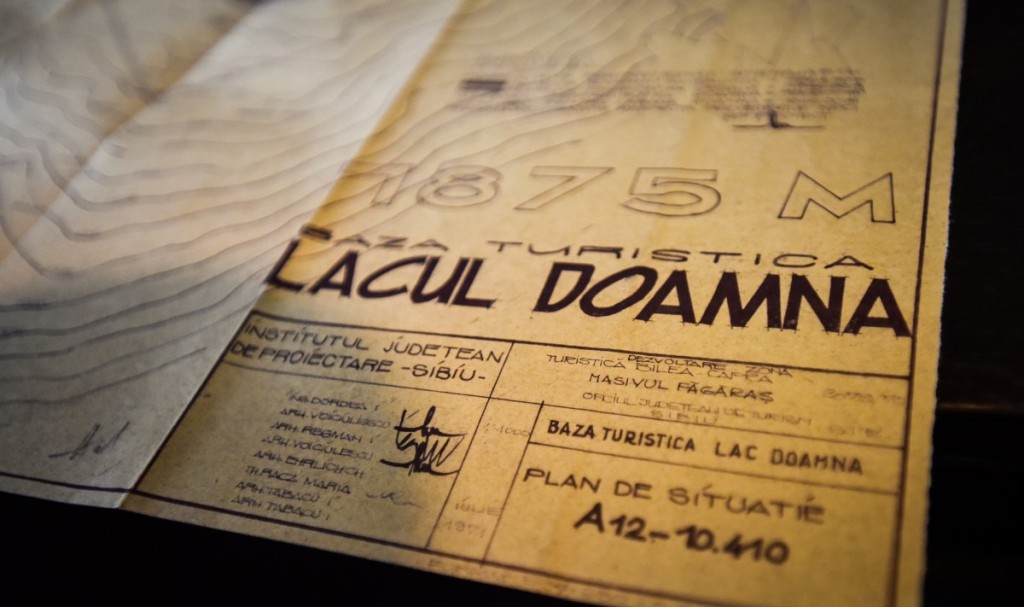 1875 M
BAZA TURISTICA
LACUL DOAMNA
INSTITUTUL JUDETEAN
DE PROIECTARE -SIBIU-
DEZVOLTARE ZONA
TURISTICĂ BILEA CAPRA
MASIVUL FĂGĂRAȘ
OFICIUL JUDETEAN DE TURISM
SIBIU
ING. DORDEA I
ARH. VOICULESCU
ARH. REGMAN I
ARH. VOICULESCU
ARH. EHRLICH CH
TH. RACZ MARIA
ARH. TABACU I
ARH. TABACU I
IULIE
1971
BAZA TURISTICA LAC DOAMNA
PLAN DE SITUATIE
A12.-10.410